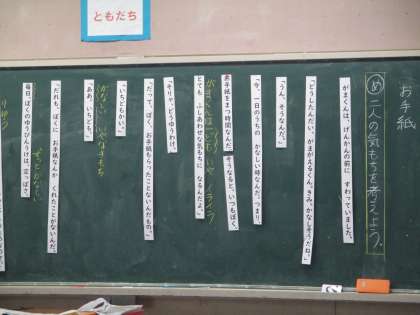 ともだち
お手紙
め 二人の気もちを考えよう。
がまくんは、げんかんの前に すわっていました。
「どうしたんだい、がまがえるくん。きみ、かなしそうだね。」
「うん、そうなんだ。」
「今、一日のうちの かなしい時なんだ。つまり、
お手紙をまつ時間なんだ。そうなると、いつもぼく、
とても ふしあわせな気もちに なるんだよ。」
「そりゃ、どういうわけ。」
「だって、ぼく、お手紙もらったことないんだもの。」
「いちどもかい。」
「ああ。いちども。」
「だれも、ぼくに お手紙なんか くれたことがないんだ。
毎日、ぼくのゆうびんうけは、空っぽさ。